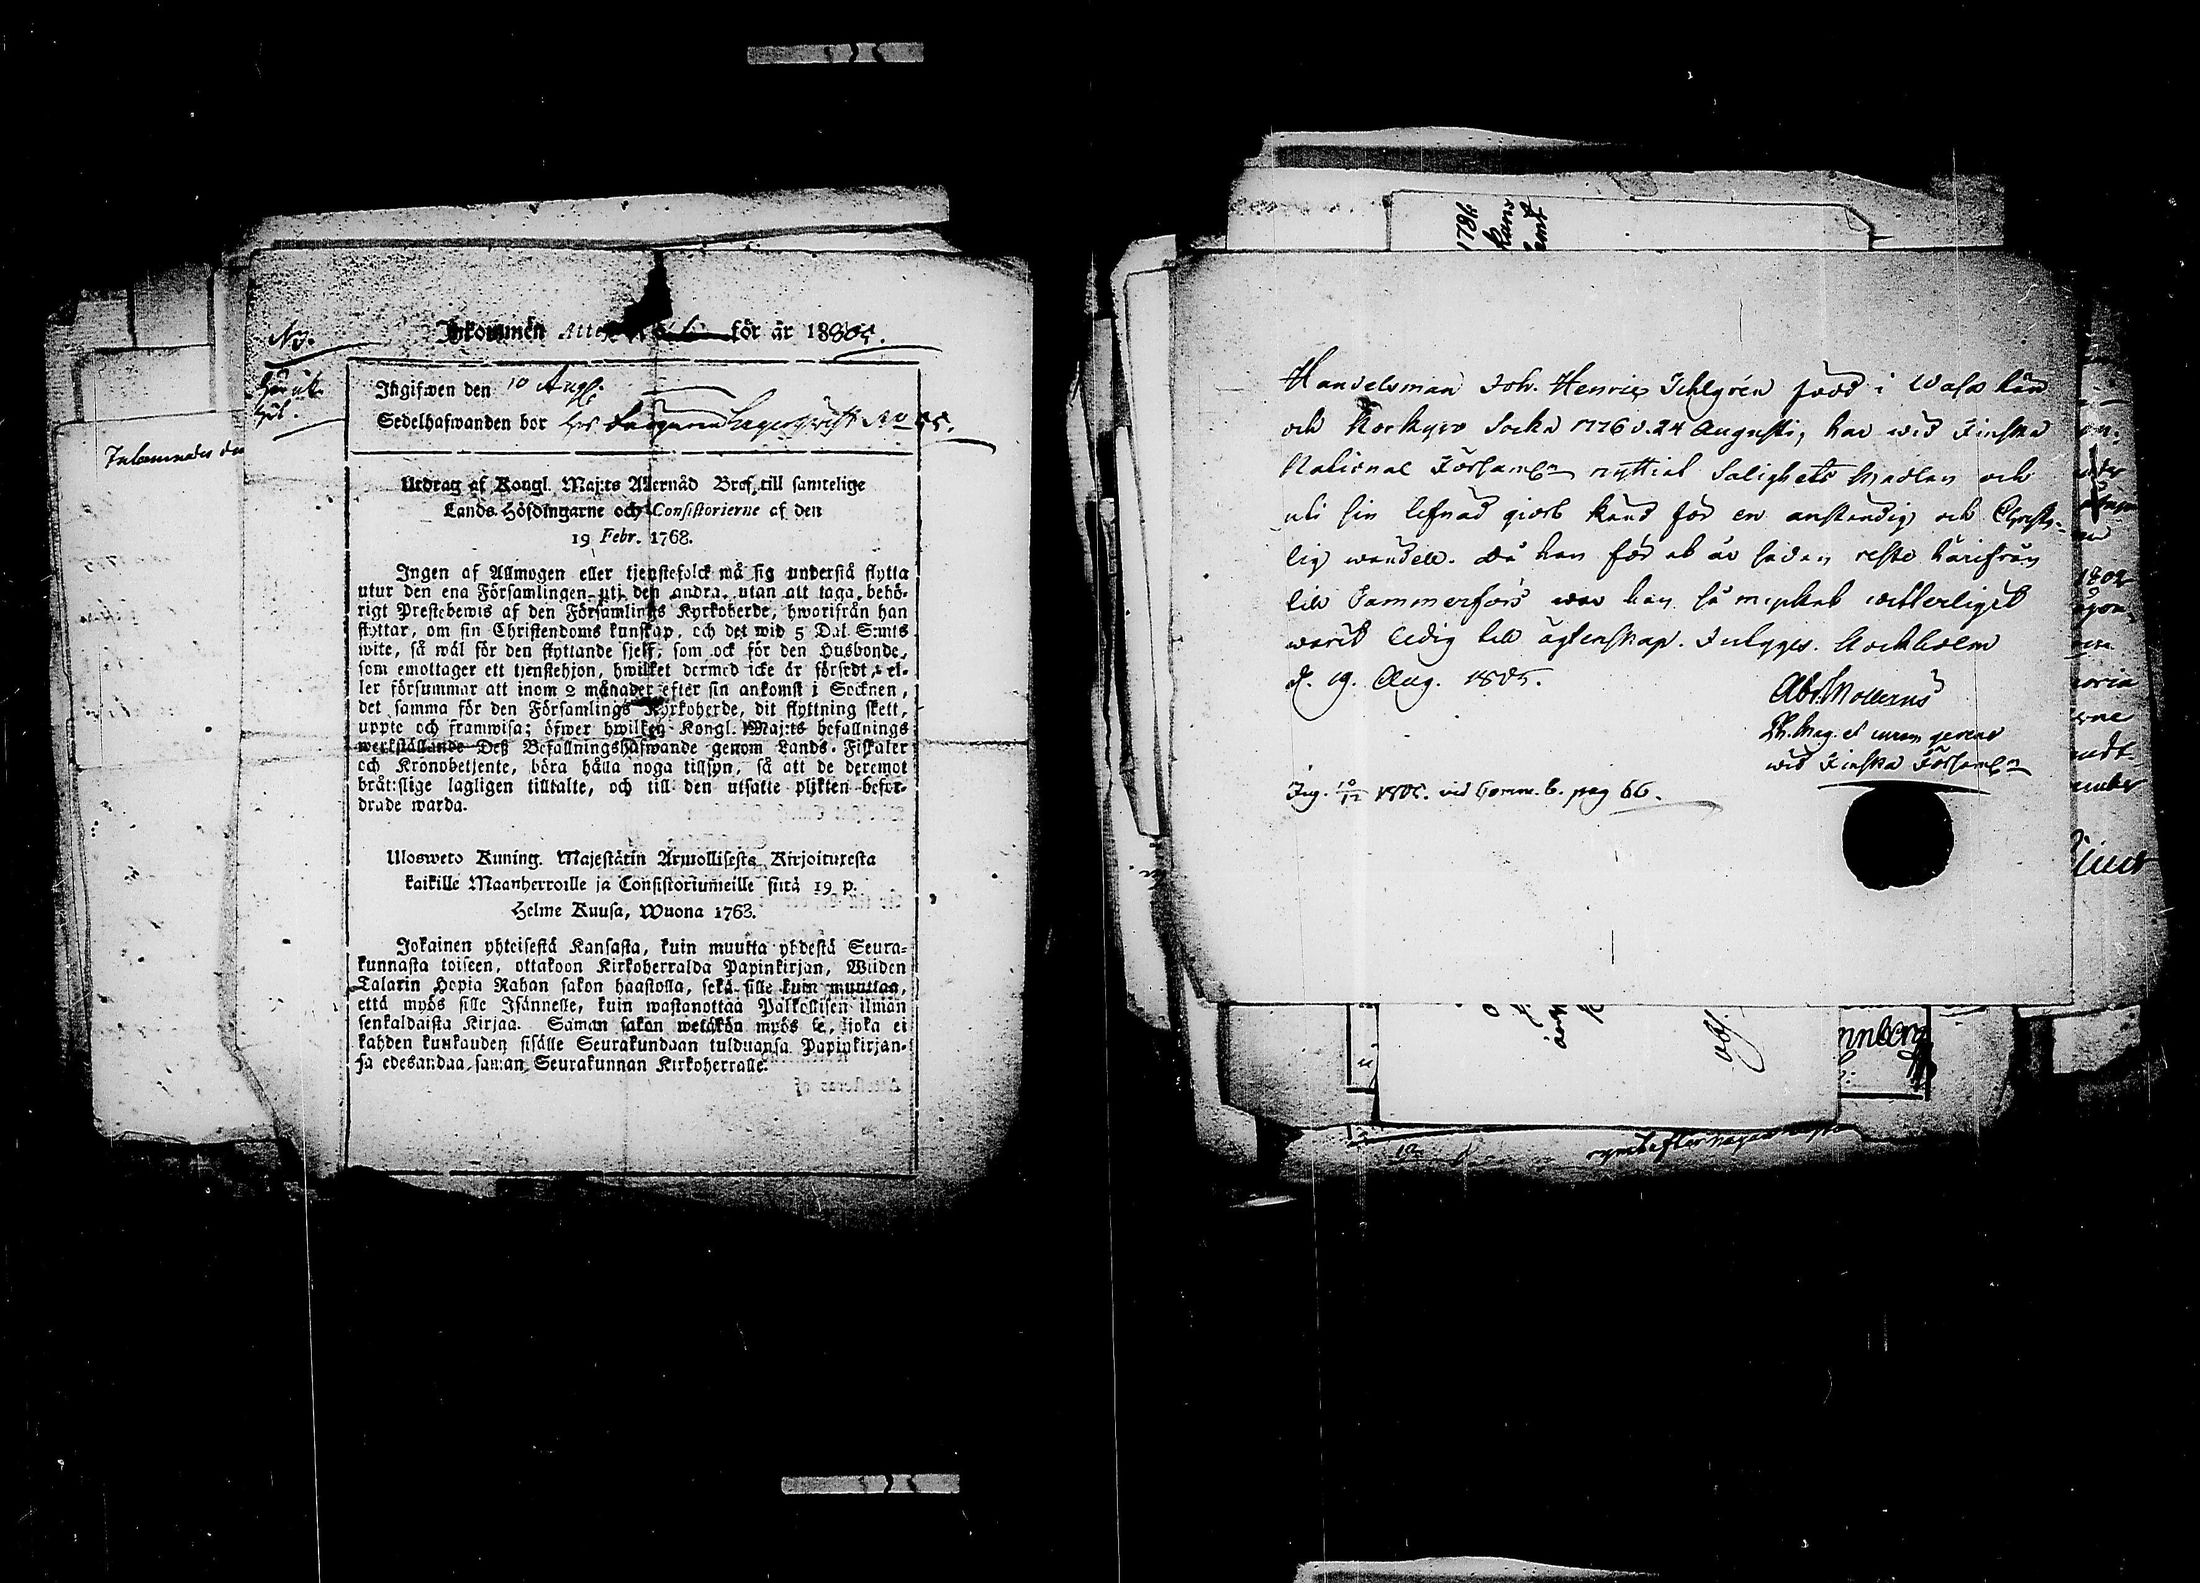 No.
Inkommen för år 1805.
Ingifwen den 10 Aug.
Sedelhafwanden bor hos No 55.
Utdrag af Kongl. Maj:ts Allernåd Bref till samtelige
Lands-Höfdingarne och Consistorierne af den
19 Febr. 1768.
Ingen af Allmogen eller tjenstefolck må sig understå flytta
utur den ena Församlingen uti den andra, utan att taga behö-
rigt Prestebewis af den Församlings Kyrkoherde, hworifrån han
flyttar, om sin Christendoms kunskap, och det wid 5 Dal. S:mts
wite, så wäl för den flyttande sjelf, som ock för den Husbonde,
som emottager ett tjenstehjon, hwilket dermed icke är försedt, el-
ler försummar att inom 2 månader efter sin ankomst i Socknen,
det samma för den Församlings Kyrkoherde, dit flyttning skett,
uppte och framwisa; öfwer hwilken Kongl. Maj:ts befallnings
werkställande Deß Befallningshafwande genom Lands-Fiskaler
och Kronobetjente, böra hålla noga tillsyn, så att de deremot
bråtslige lagligen tilltalte, och till den utsatte plikten befor-
drade warda.
Ulosweto Kuning. Majestätin Armollisesta Kirjoituxesta
kaikille Maanherroille ja Consistoriumeille siitä 19 p.
Helme Kuusa, Wuona 1768.
Jokainen yhteisestä Kansasta, kuin muutta yhdestä Seura-
kunnasta toiseen, ottakoon Kirkoherralda Papinkirjan, Wiiden
Talarin Hopia Rahan sakon haastolla, sekä sille kuin muuttaa,
että myös sille Isännelle, kuin wastanottaa Palkollisen ilman
senkaldaista Kirjaa. Saman sakon wetäkön myös se, joka ei
kahden kuukauden sisälle Seurakundaan tulduansa Papinkirjan-
sa edesandaa saman Seurakunnan Kirkoherralle.
1786
Handelsman Joh. Henric Ichlgrén född i Wasa Län
och Storkyro Sockn 1776 d. 24 Augusti, har wid Finska
National Församln nyttiat Salighets Medlen och
uti sin lefnad giort känd för en anständig och Christe-
lig wandell. Då han för et år sedan reste härifrån
till Tammerfors war han så mycket witterligit
warit ledig till ägtenskap. Intygas. Stockholm
d. 19. Aug. 1805.
Abr. Mollerus
Ph. Mag. et curam gerens
wid Finska Församln
Ing. 10/12 1805. vid Comm. b. pag 66.